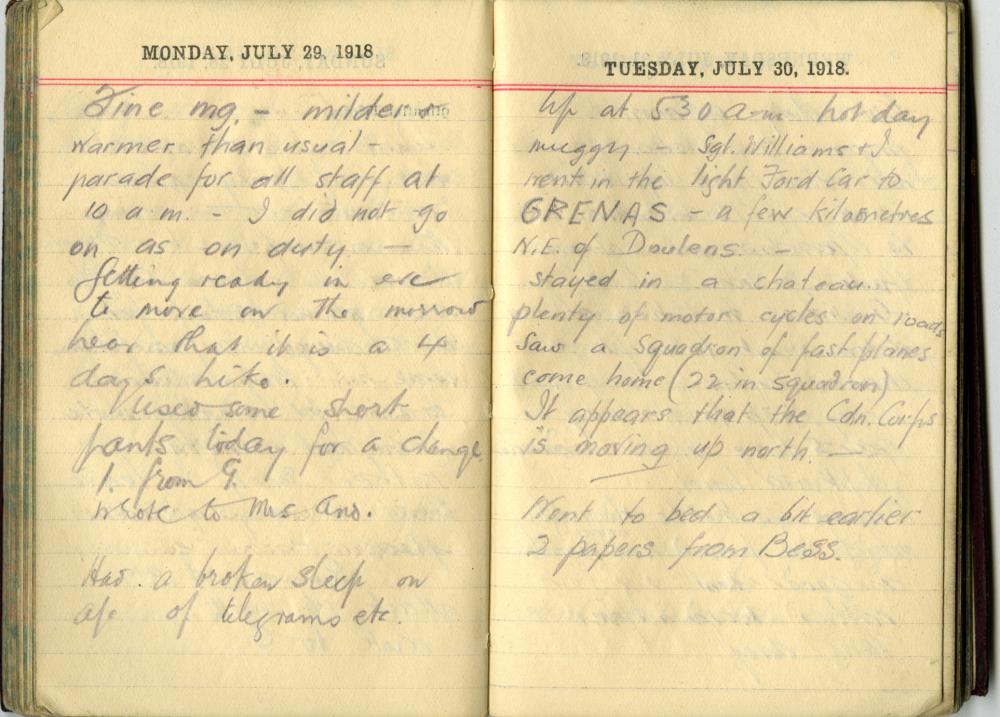 MONDAY, JULY 29, 1918
Fine mg. - milder &
warmer than usual
parade for all staff at
10 a m. - I did not go
on as on duty —
Getting ready in eve
to move on the morrow
hear that it is a 4
days hike.
Used some short
pants today for a change
1 from G.
Wrote to Mrs. And.
Had a broken sleep on
a/c of telegrams etc.
TUESDAY, JULY 30, 1918.
Up at 530 a-m hot day
muggy - Sgt. Williams & I
went in the light Ford Car to
GRENAS - a few kilometres
N.E. of Doulens -
stayed in a chateau.
plenty of motor cycles on roads
Saw a squadron of fast planes
come home (22 in squadron)
It appears that the Cdn. Corps
is moving up north. —
Went to bed a bit earlier
2 papers from Bess.